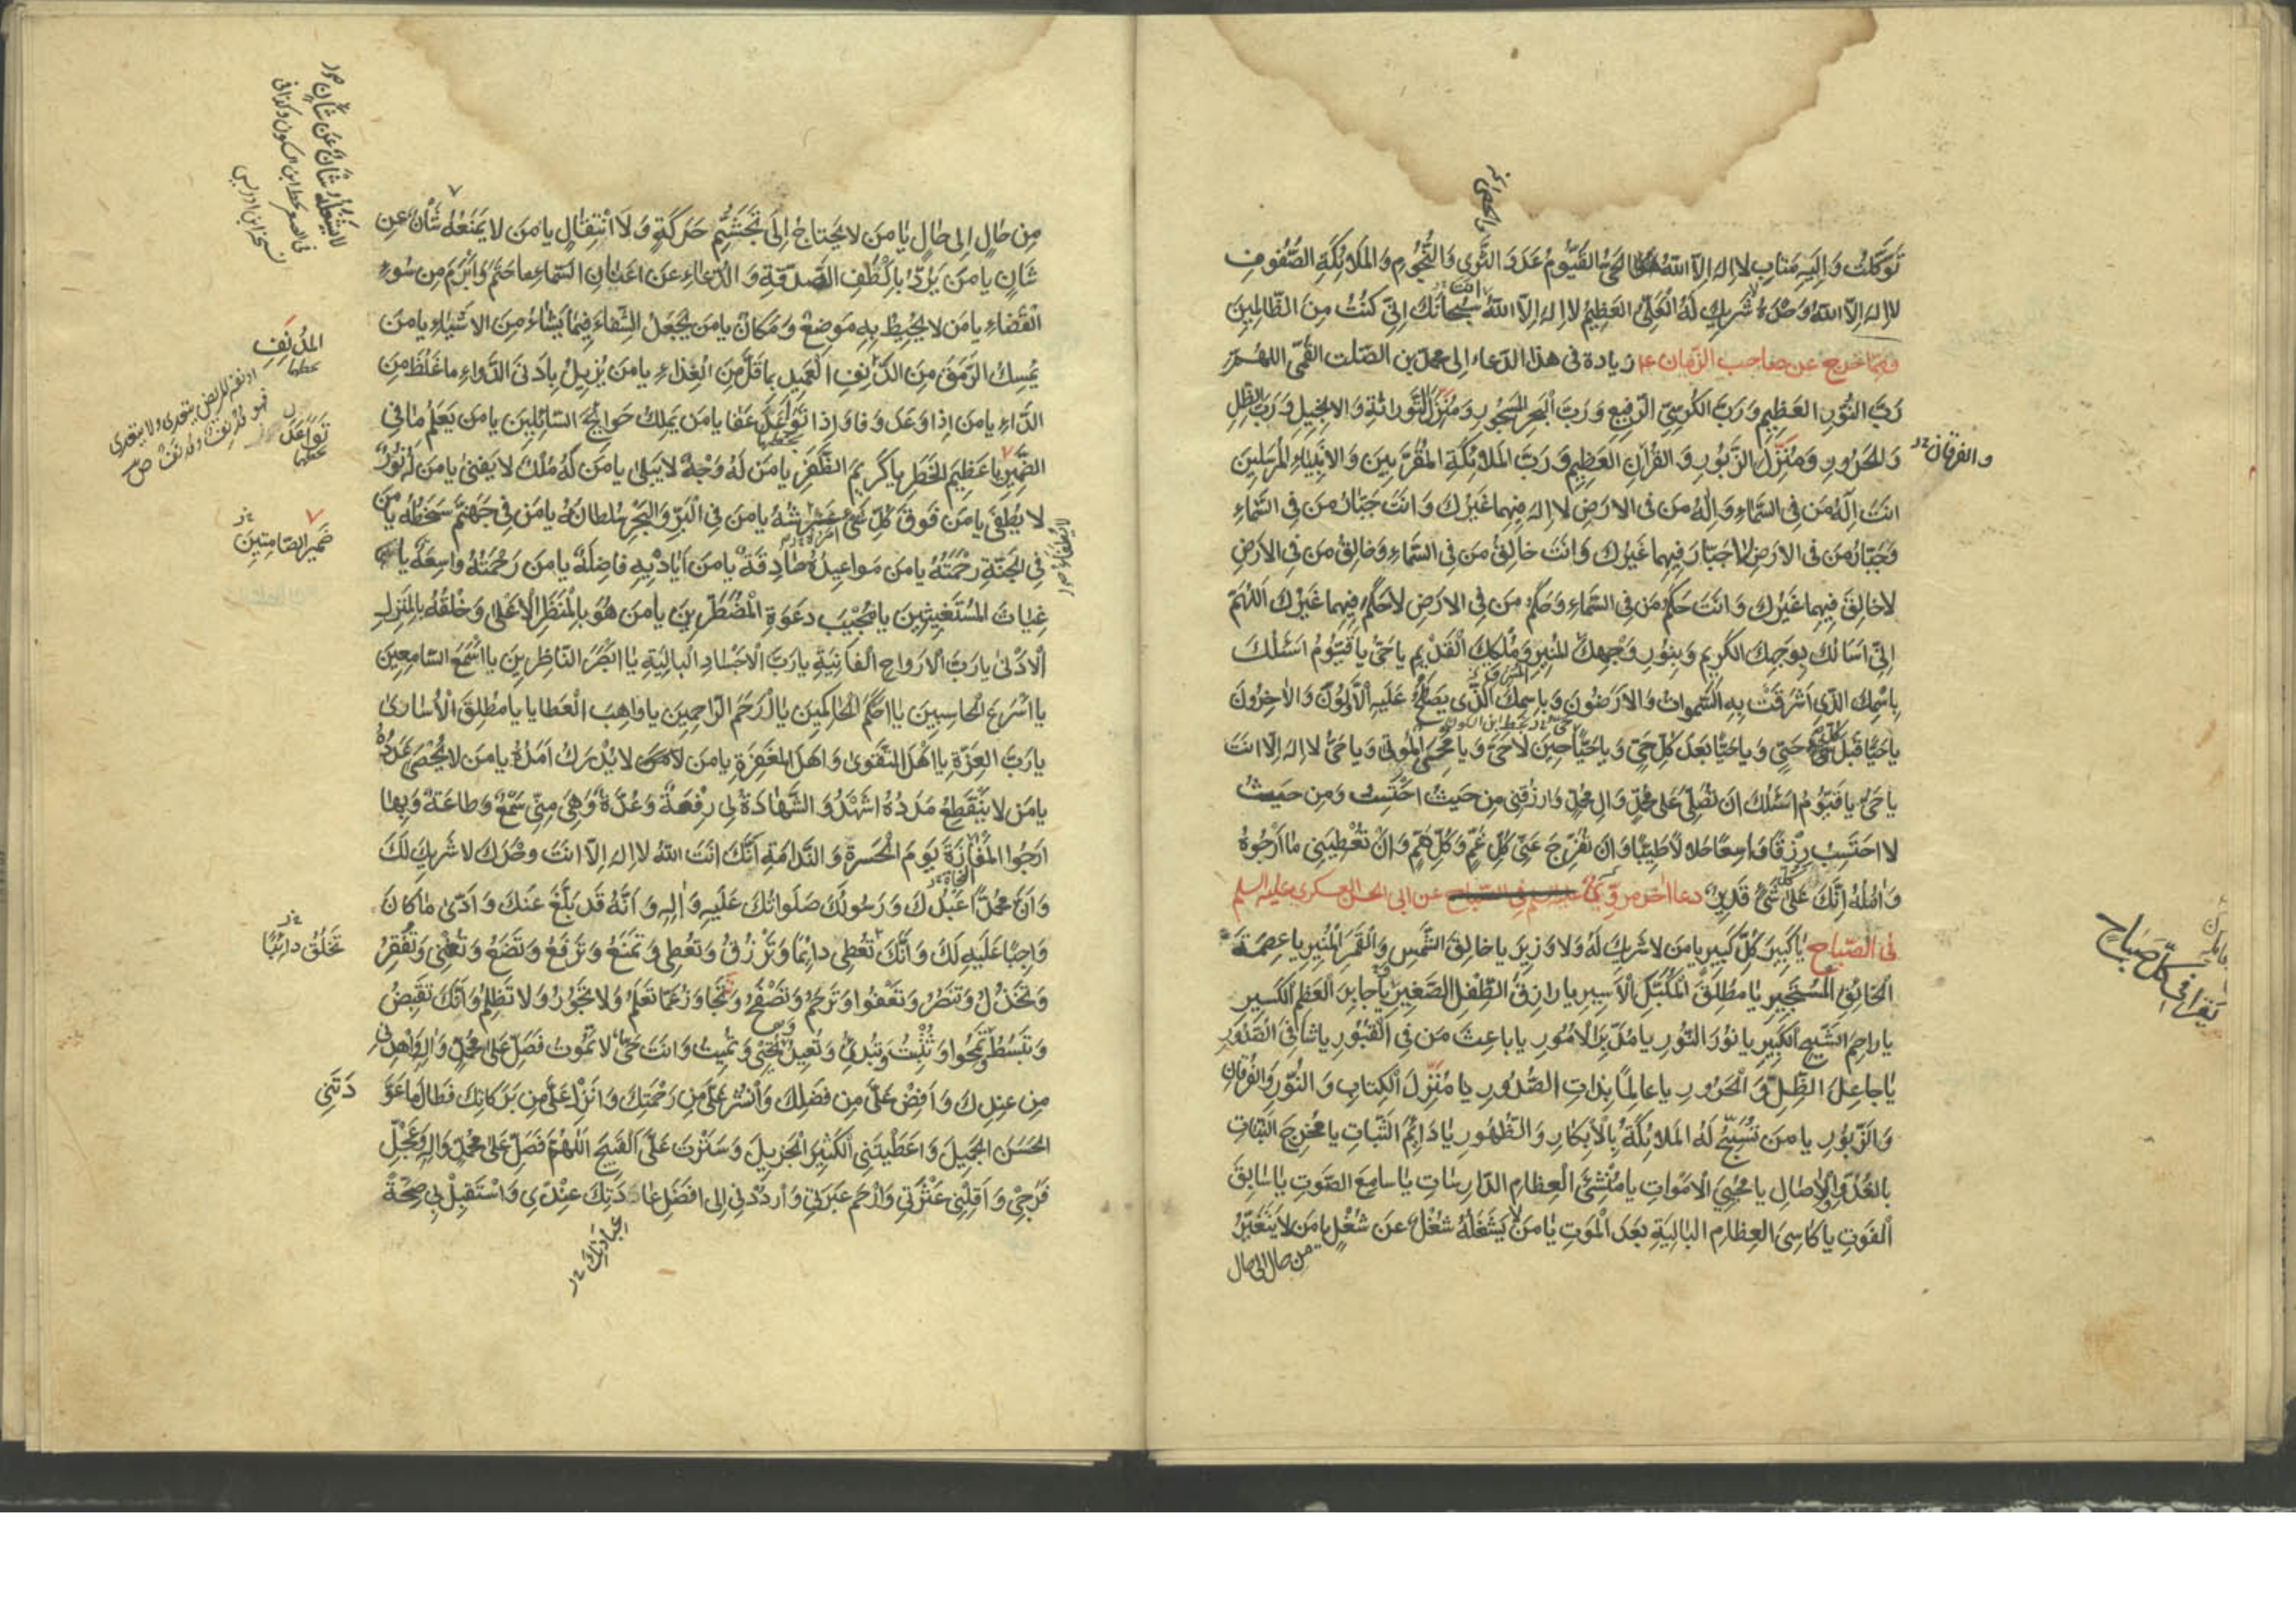 توكلت واليه متاب لا اله الا الله الحي القيوم عدد الثرى والنجوم والملائكة الصفوف
لا اله الا الله وحده لا شريك له العلي العظيم لا اله الا انت سبحانك اني كنت من الظالمين
ومما خرج عن صاحب الزمان زيادة في هذا الدعاء الى محمد بن الصلت القمي اللهم
رَبَّ النُّورِ العَظِيمِ وَرَبَّ الكُرسِيِّ الرَّفِيعِ وَرَبَّ البَحرِ المَسجُورِ وَمُنَزِّلَ التَّورٰاةِ وَالاِنجِيلِ وَرَبَّ الظِّلِّ
والفرقان
وَالحَرُورِ وَمُنَزِّلَ الزَّبُورِ وَالقُرآنِ العَظِيمِ وَرَبَّ المَلائِكَةِ المُقَرَّبِينَ وَالاَنبِيَاءِ المُرسَلِينَ
انتَ اِلٰهُ مَن فِي السَّمَاءِ وَاِلٰهُ مَن فِي الارَضِ لا اِلهَ فِيهِما غَيرُكَ وَانتَ جَبّارُ مَن فِي السَّمٰاءِ
وَجَبّارُ مَن فِي الارَضِ لا جَبّارَ فِيهِما غَيرُكَ وَانتَ خالِقُ مَن فِي السَّمٰاءِ وَخالِقُ مَن فِي الارَضِ
لا خالِقَ فِيهِما غَيرُكَ وَانتَ حَكَمُ مَن فِي السَّماءِ وَحَكَمُ مَن فِي الارَضِ لا حَكَمَ فِيهِما غَيرُكَ اَللّهُمَّ
اِنِّي اَسأَلُكَ بِوَجهِكَ الكَرِيمِ وَبِنُورِ وَجهِكَ المُنِيرِ وَمُلكِكَ القَدِيمِ يا حَيُّ يا قَيُّومُ اَسئَلُكَ
بِاسمِكَ الَّذِي اَشرَقَت بِهِ السَّمٰواتُ وَالاَرَضُونَ وَبِاسمِكَ الَّذِي يَصلُحُ عَلَيهِ الاَوَّلُونَ وَالآخِرُونَ
يا حَيًّا قَبلَ كُلِّ حَيٍّ وَيا حَيًّا بَعدَ كُلِّ حَيٍّ وَيا حَيًّا حِينَ لا حَيَّ وَيا مُحيِيَ المَوتىٰ وَيا حَيُّ لا اِلهَ اِلّا انتَ
يا حَيُّ يا قَيُّومُ اَسئَلُكَ ان تُصَلِّيَ عَلىٰ مُحَمَّدٍ وَآلِ مُحَمَّدٍ وَارزُقنِي مِن حَيثُ احتَسِبُ وَمِن حَيثُ
لا احتَسِبُ رِزقًا واسِعًا حَلالًا طَيِّبًا وَان تُفَرِّجَ عَنِّي كُلَّ غَمٍّ وَكُلَّ هَمٍّ وَاَن تُعطِيَنِي ما اَرجُوهُ
وَآمُلُهُ اِنَّكَ عَلىٰ كُلِّ شَيءٍ قَدِيرٌ دعاء اخر مروي عن ابي الحسن العسكري عليه السلم
يقرا في كل صباح
في الصباح يا كَبِيرَ كُلِّ كَبِيرٍ يا مَن لا شَرِيكَ لَهُ وَلا وَزِيرَ يا خالِقَ الشَّمسِ وَالقَمَرِ المُنِيرِ يا عِصمَةَ
الخائِفِ المُستَجِيرِ يا مُطلِقَ المُكَبَّلِ الاَسِيرِ يا رازِقَ الطِّفلِ الصَّغِيرِ يا جابِرَ العَظمِ الكَسِيرِ
يا راحِمَ الشَّيخِ الكَبِيرِ يا نُورَ النُّورِ يا مُدَبِّرَ الاُمُورِ يا باعِثَ مَن فِي القُبُورِ يا شافِيَ الصُّدُورِ
يا جاعِلَ الظِّلِّ وَالحَرُورِ يا عالِمًا بِذاتِ الصُّدُورِ يا مُنَزِّلَ الكِتابِ وَالنُّورِ وَالفُرقانِ
وَالزَّبُورِ يا مَن تُسَبِّحُ لَهُ المَلائِكَةُ بِالاِبكارِ وَالظُّهُورِ يا دائِمَ الثَّباتِ يا مُخرِجَ النَّباتِ
بِالغُدُوِّ وَالآصالِ يا مُحيِيَ الاَمواتِ يا مُنشِئَ العِظامِ الدّارِساتِ يا سامِعَ الصَّوتِ يا سابِقَ
الفَوتِ يا كاسِيَ العِظامِ البالِيَةِ بَعدَ المَوتِ يا مَن لا يَشغَلُهُ شُغلٌ عَن شُغلٍ يا مَن لا يَتَغَيَّرُ
من حال الى حال
مِن حالٍ اِلى حالٍ يا مَن لا يَحتاجُ اِلىٰ تَجَشُّمِ حَرَكَةٍ وَلا انتِقالٍ يا مَن لا يَمنَعُهُ شَأنٌ عَن
شَانٍ يا مَن يَرُدُّ بِاَلطَفِ الصَّدَقَةِ وَالدُّعاءِ عَن اَعنانِ السَّماءِ ما حَتَمَ وَاَبرَمَ مِن سُوءِ
القَضاءِ يا مَن لا يُحِيطُ بِهِ مَوضِعٌ وَمَكانٌ يا مَن يَجعَلُ الشِّفاءَ فِيما يَشاءُ مِنَ الاَشياءِ يا مَن
المُدنَفِ
يُمسِكُ الرَّمَقَ مِنَ الدَّنِفِ العَمِيدِ بِما قَلَّ مِنَ الغِذاءِ يا مَن يُزِيلُ بِاَدنَى الدَّواءِ ما غَلُظَ مِنَ
الدّاءِ يا مَن اِذا وَعَدَ وَفا وَاِذا تَوَعَّدَ عَفا يا مَن يَملِكُ حَوائِجَ السّائِلِينَ يا مَن يَعلَمُ ما فِي
ضَمِيرِ الصّامِتِينَ
الضَّمِيرِ يا عَظِيمَ الخَطَرِ يا كَرِيمَ الظَّفَرِ يا مَن لَهُ وَجهٌ لا يَبلىٰ يا مَن لَهُ مُلكٌ لا يَفنىٰ يا مَن لَهُ نُورٌ
لا يُطفىٰ يا مَن فَوقَ كُلِّ شَيءٍ عَرشُهُ يا مَن فِي البَرِّ وَالبَحرِ سُلطانُهُ يا مَن فِي جَهَنَّمَ سَخَطُهُ يا مَن
فِي الجَنَّةِ رَحمَتُهُ يا مَن مَواعِيدُهُ صادِقَةٌ يا مَن اَيادِيهِ فاضِلَةٌ يا مَن رَحمَتُهُ واسِعَةٌ يا
غِياثَ المُستَغِيثِينَ يا مُجِيبَ دَعوَةِ المُضطَرِّينَ يا مَن هُوَ بِالمَنظَرِ الاَعلىٰ وَخَلقُهُ بِالمَنزِلِ
الاَدنىٰ يا رَبَّ الاَرواحِ الفانِيَةِ يا رَبَّ الاَجسادِ البالِيَةِ يا اَبصَرَ النّاظِرِينَ يا اَسمَعَ السّامِعِينَ
يا اَسرَعَ الحاسِبِينَ يا اَحكَمَ الحاكِمِينَ يا اَرحَمَ الرّاحِمِينَ يا واهِبَ العَطايا يا مُطلِقَ الاُسارىٰ
يا رَبَّ العِزَّةِ يا اَهلَ التَّقوىٰ وَاَهلَ المَغفِرَةِ يا مَن لا يُدرَكُ اَمَدُهُ يا مَن لا يُحصىٰ عَدَدُهُ
يا مَن لا يَنقَطِعُ مَدَدُهُ اَشهَدُ وَالشَّهادَةُ لِي رِفعَةٌ وَعُدَّةٌ وَهِيَ مِنِّي سَمعٌ وَطاعَةٌ وَبِها
اَرجُوا المَفازَةَ يَومَ الحَسرَةِ وَالنَّدامَةِ اَنَّكَ اَنتَ اللهُ لا اِلهَ اِلّا انتَ وَحدَكَ لا شَرِيكَ لَكَ
وَاَنَّ مُحَمَّدًا عَبدُكَ وَرَسُولُكَ صَلَواتُكَ عَلَيهِ وَآلِهِ وَاَنَّهُ قَد بَلَّغَ عَنكَ وَاَدّىٰ ما كانَ
تَخلُقُ دائِبًا
واجِبًا عَلَيهِ لَكَ وَاَنَّكَ تُعطِي دائِمًا وَتَرزُقُ وَتُعطِي وَتَمنَعُ وَتَرفَعُ وَتَضَعُ وَتُغنِي وَتُفقِرُ
وَتَخذُلُ وَتَنصُرُ وَتَعفُوا وَتَرحَمُ وَتَصفَحُ وَتَجاوَزُ عَمّا تَعلَمُ وَلا تَجُورُ وَلا تَظلِمُ وَاَنَّكَ تَقبِضُ
وَتَبسُطُ وَتَمحُوا وَتُثبِتُ وَتُبدِئُ وَتُعِيدُ وَتُحيِي وَتُمِيتُ وَانتَ حَيٌّ لا تَمُوتُ فَصَلِّ عَلىٰ مُحَمَّدٍ وَآلِهِ وَاهدِنِي
مِن عِندِكَ وَاَفِض عَلَيَّ مِن فَضلِكَ وَانشُر عَلَيَّ مِن رَحمَتِكَ وَاَنزِل عَلَيَّ مِن بَرَكاتِكَ فَطالَ ما عَوَّ
دَتَنِي
الحَسَنَ الجَمِيلَ وَاَعطَيتَنِي الكَثِيرَ الجَزِيلَ وَسَتَرتَ عَلَيَّ القَبِيحَ اَللّهُمَّ فَصَلِّ عَلىٰ مُحَمَّدٍ وَآلِهِ وَعَجِّل
فَرَجِي وَاَقِلنِي عَثرَتِي وَارحَم عَبرَتِي وَاردُدنِي اِلىٰ اَفضَلِ عادَتِكَ عِندِي وَاستَقبِل بِي صِحَّةً